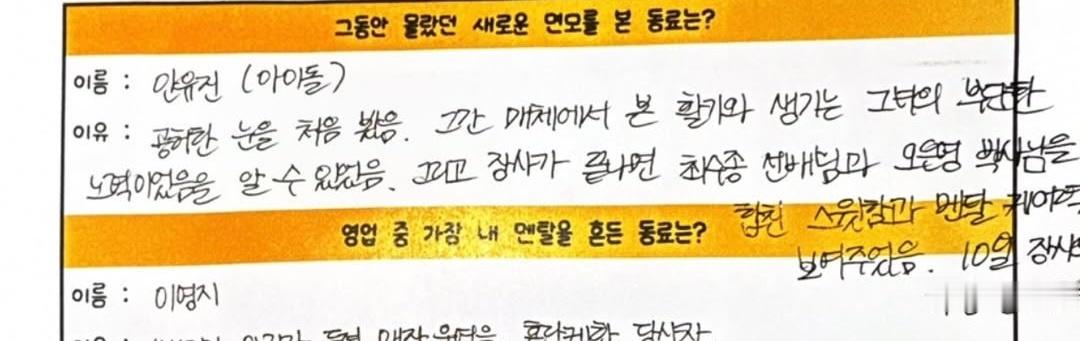 그동안 몰랐던 새로운 면모를 본 동료는?
이름 : 안유진 (아이돌)
이유 : 공허한 눈을 처음 봤음. 그간 매체에서 본 활기와 생기는 그녀의 부단한
노력이었음을 알 수 있었음. 그리고 장사가 끝나면 최수종 선배님과 오은영 박사님을
합친 스윗함과 멘탈 케어를
보여주었음. 10월 장사
영업 중 가장 내 멘탈을 흔든 동료는?
이름 : 이영지